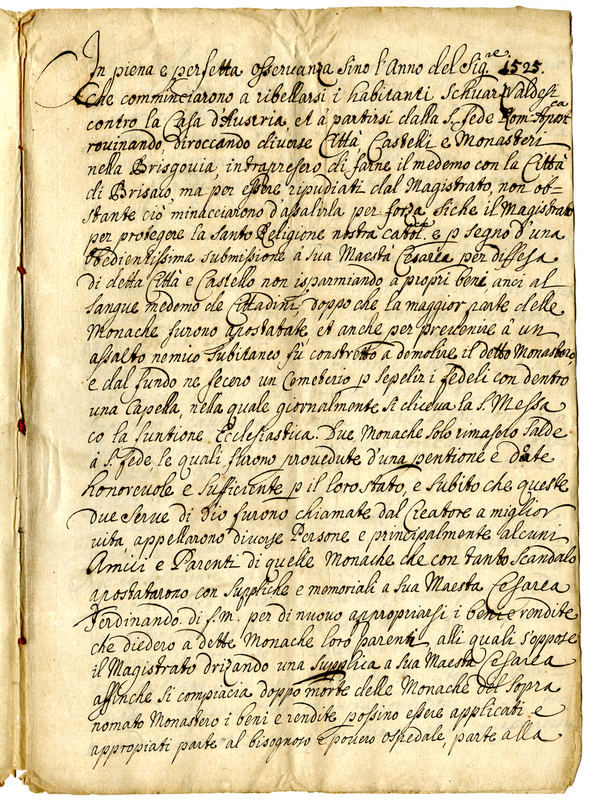 In piena e perfetta osservanza sino l'Anno del Sig.re 1525.
che comminciarono a ribellarsi i habitanti Schuarzvaldesi
contro la Casa d'Austria, et à partirsi dalla S. fede Rom: Apost.ca
rovinando, diroccando diverse Città Castelli e Monasteri
nella Brisgovia, intrapresero di farne il medemo con la Città
di Brisaco, ma per essere ripudiati dal Magistrato, non ob=
stante ciò minacciarono d'assalirla per forza siche il Magistrato
per protegere la Santa Religione nostra catt.ca e p segno d'una
obedientissima submissione à sua Maestà Cesarea per diffesa
di detta Città e Castello non isparmiando à propri beni anci al
sangue medemo de Cittadini doppo che la maggior parte delle
Monache furono apostatate et anche per prevenire à un
assalto nemico subitaneo fù constretto a demolire il detto Monastero,
e dal fundo ne fecero un Cometerio p sepelir i fedeli con dentro
una Capella, nella quale giornalmente si diceva la S. Messa
co la funtione Ecclesiastica. Due Monache solo rimaselo salde
à S. fede, le quali furono provedute d'una pentione e date
honorevole e sufficiente p il loro stato, e subito che queste
due serve di Dio furono chiamate dal Creatore a miglior
vita appellarono diverse Persone e principalmente alcuni
Amici e Parenti di quelle Monache che con tanto scandalo
apostatarono con suppliche e memoriali a sua Maestà Cesarea
Ferdinando di f.m. per di nuovo appropriarsi i beni e rendite
che diedero a dette Monache loro parenti, alli quali s'oppose
il Magistrato drizando una supplica a sua Maestà Cesarea
affinche si compiacia doppo morte delle Monache del sopra
nomato Monastero i beni e rendite possino essere applicati e
appropiati parte al bisognoso e povero ospedale, parte alla